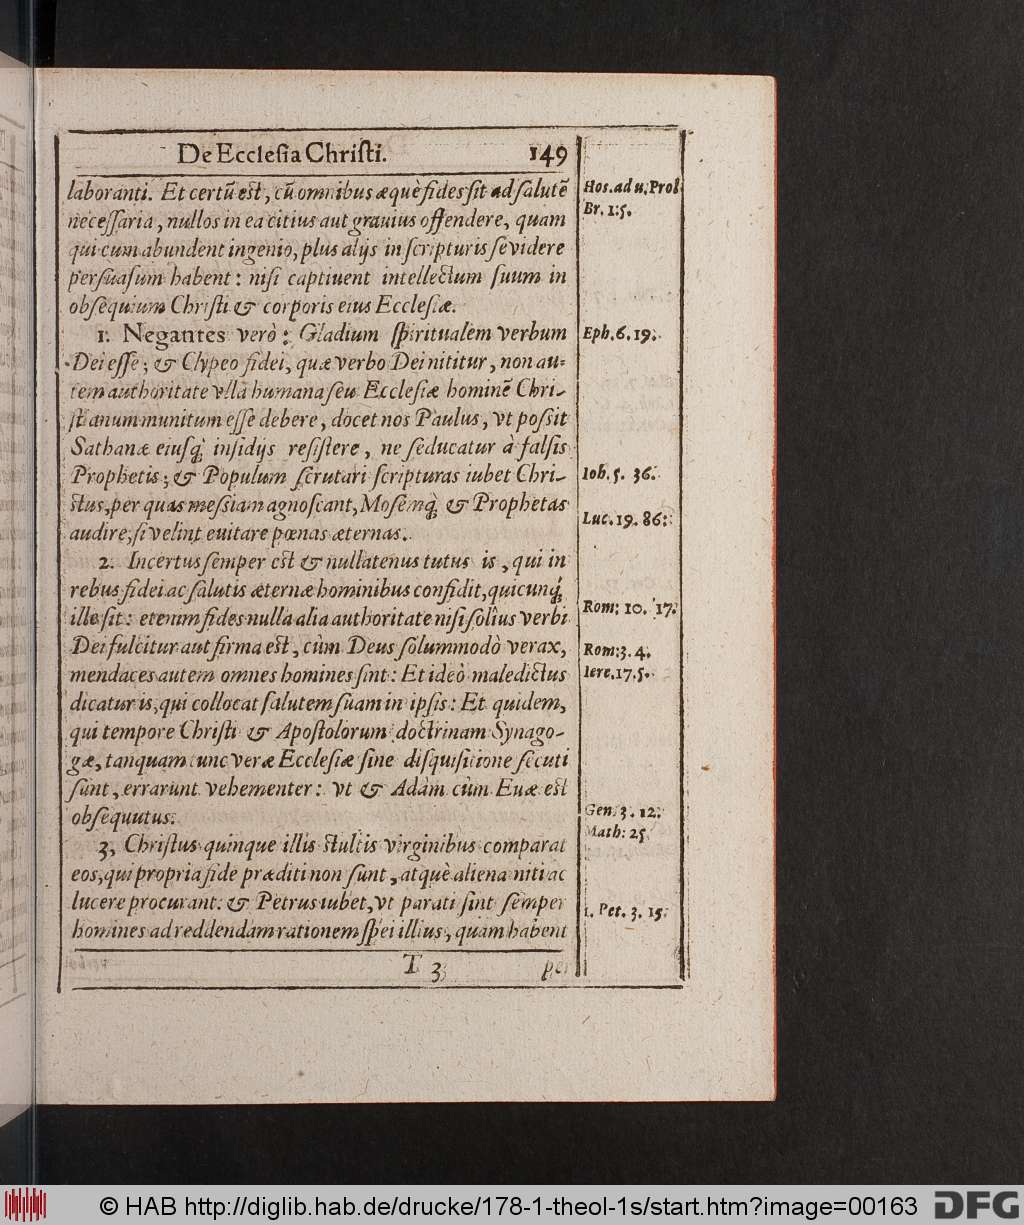 De Ecclesia Christi. 149
laboranti. Et certũ est, cũ omnibus æquè fides sit ad salutẽ
necessaria, nullos in ea citius aut grauius offendere, quam
qui cum abundent ingenio, plus alijs in scripturis se videre
persuasum habent: nisi captiuent intellectum suum in
obsequium Christi & corporis eius Ecclesiæ.
1. Negantes verò: Gladium spiritualem verbum
Dei esse; & Clypeo fidei, quæ verbo Dei nititur, non au=
tem authoritate vlla humana seu Ecclesiæ hominẽ Chri-
stianum munitum esse debere, docet nos Paulus, vt possit
Sathanæ eiusq; insidijs resistere, ne seducatur à falsis
Prophetis; & Populum scrutari scripturas iubet Chri-
stus, per quas messiam agnoscant, Mosemq; & Prophetas
audire, si velint euitare pœnas æternas.
2. Incertus semper est & nullatenus tutus is, qui in
rebus fidei ac salutis æternæ hominibus confidit, quicunq;
ille sit: etenim fides nulla alia authoritate nisi solius verbi
Dei fulcitur aut firma est, cùm Deus solummodò verax,
mendaces autem omnes homines sint: Et ideò maledictus
dicatur is, qui collocat salutem suam in ipsis: Et quidem,
qui tempore Christi & Apostolorum doctrinam Synago-
gæ, tanquam tunc veræ Ecclesiæ sine disquisitione secuti
sunt, errarunt vehementer: vt & Adam cùm Euæ est
obsequutus.
3, Christus quinque illis stultis virginibus comparat
eos, qui propria fide præditi non sunt, atquè aliena niti ac
lucere procurant: & Petrus iubet, vt parati sint semper
homines ad reddendam rationem spei illius, quam habent
T 3 per
Hos. ad u. Prol
Br. 1. 5.
Eph. 6. 19.
Ioh. 5. 36.
Luc. 19. 86:
Rom: 10. 17.
Rom: 3. 4.
Iere. 17. 5.
Gen. 3. 12.
Math: 25
1. Pet. 3. 15.
© HAB http://diglib.hab.de/drucke/178-1-theol-1s/start.htm?image=00163 DFG